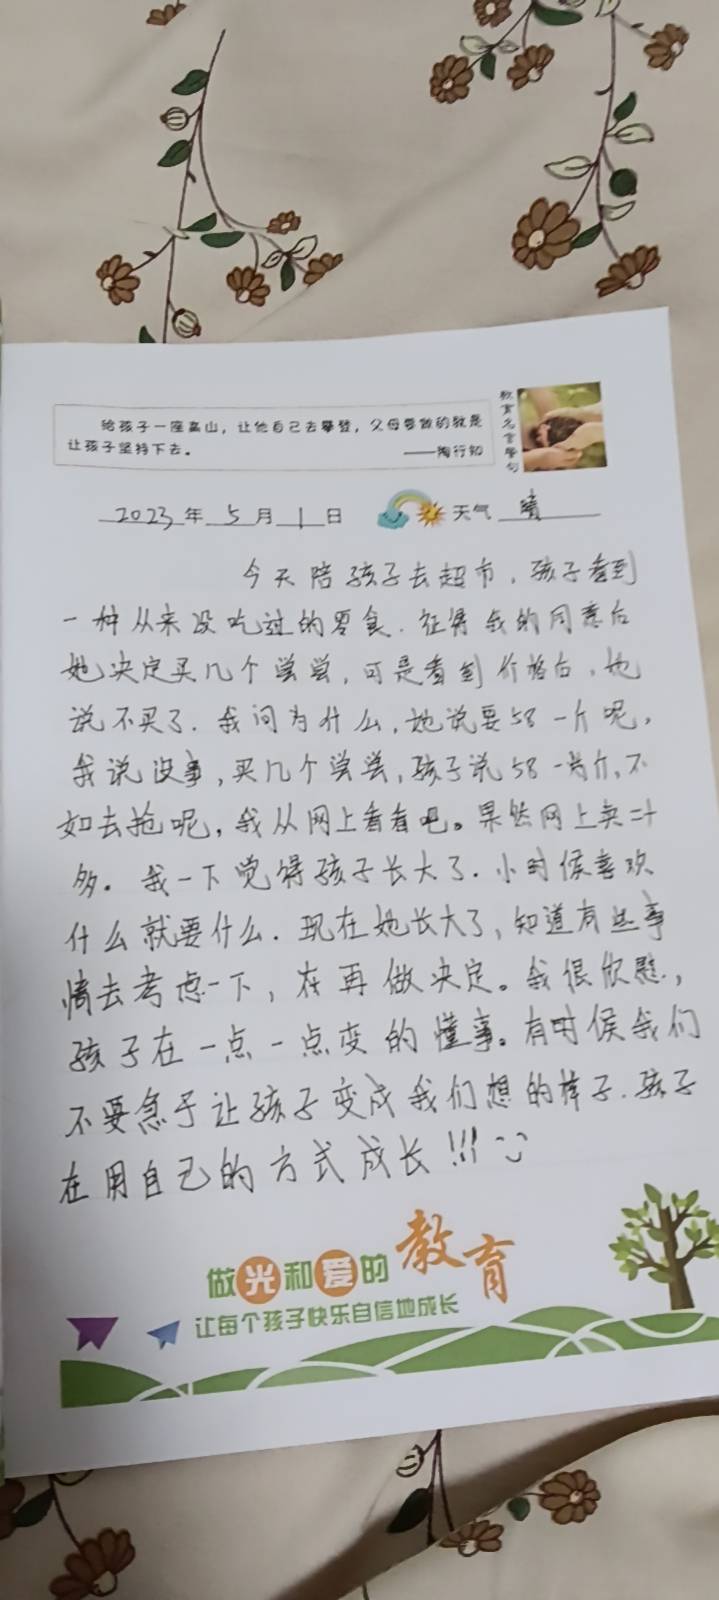 给孩子一座高山，让他自己去攀登，父母要做的就是
让孩子坚持下去。 ——陶行知
教育名言警句
2023年5月1日 天气 晴
今天陪孩子去超市，孩子看到
一种从来没吃过的零食．征得我的同意后
她决定买几个尝尝，可是看到价格后，她
说不买了．我问为什么，她说要58一斤呢，
我说没事，买几个尝尝，孩子说58一斤，不
如去抢呢，我从网上看看吧。果然网上卖二十
多。我一下觉得孩子长大了．小时候喜欢
什么就要什么．现在她长大了，知道有些事
情去考虑一下，在再做决定。我很欣慰，
孩子在一点一点变的懂事。有时候我们
不要急于让孩子变成我们想的样子．孩子
在用自己的方式成长!!!
做光和爱的教育
让每个孩子快乐自信地成长